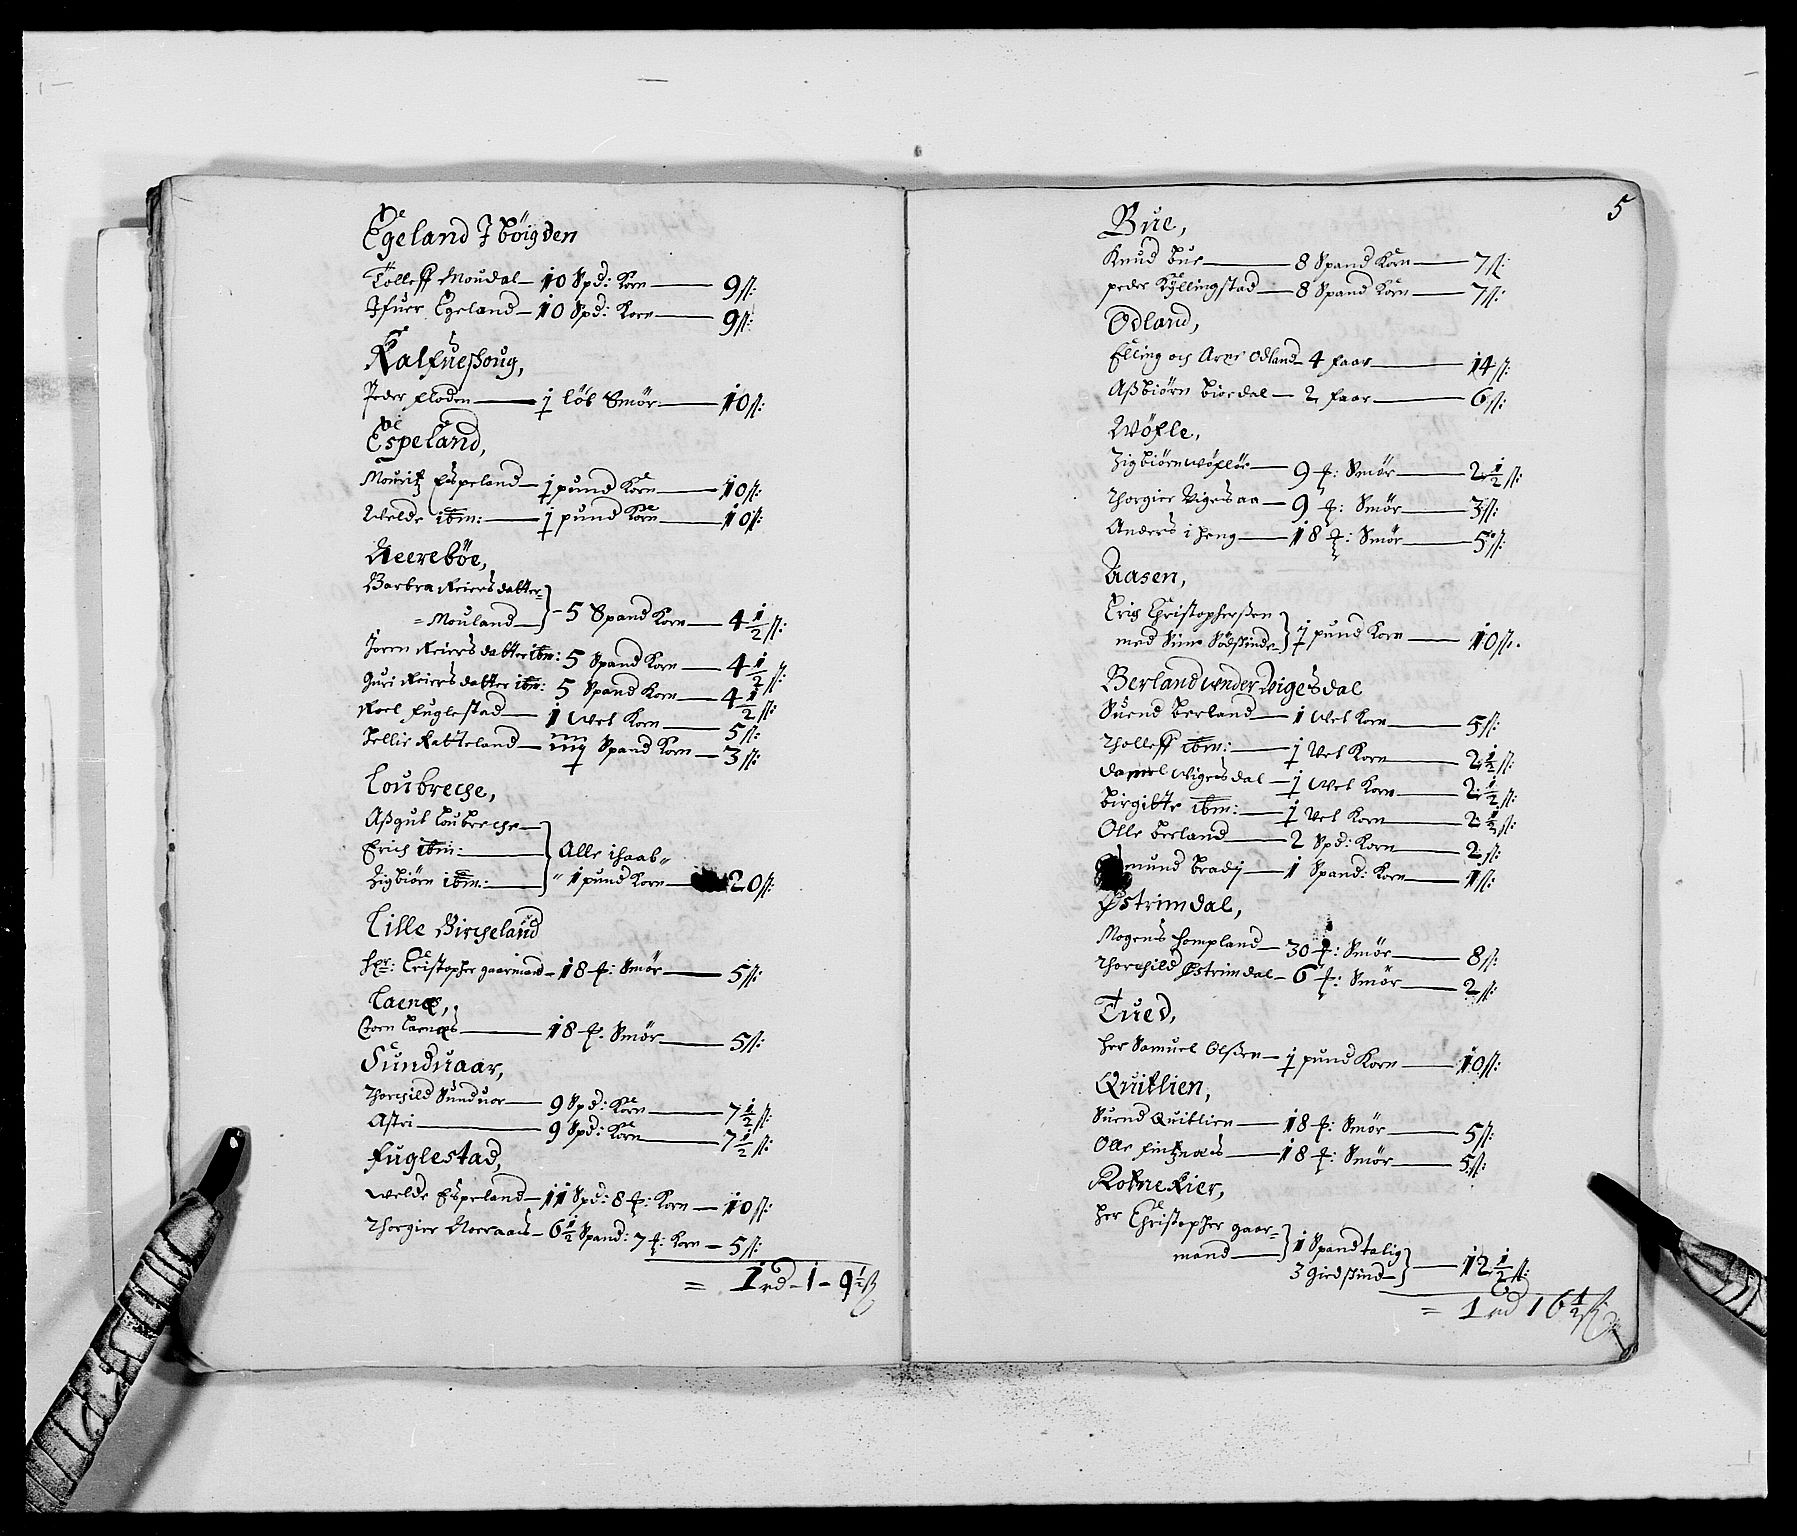 Egeland J bøigden
Tolleff Moudal — 10 Spd: Korn — 9 ß:
Ifuer Egeland — 10 Spd: Korn — 9 ß:
Kalfueshoug,
Peder Floden — j løb Smør — 10 ß:
Espeland,
Mouritz Espeland — j pund Korn — 10 ß:
Welde ibm: — j pund Korn — 10 ß:
Neerebøe,
Barbra Reiersdatter
= Mouland — 5 Spand Korn — 4 1/2 ß:
Joren Reiersdatter ibm: 5 Spand Korn — 4 1/2 ß:
Guri Reiersdatter ibm: 5 Spand Korn — 4 1/2 ß:
Roel Fuglestad — 1 Wet Korn — 5 ß:
Pellie Ratteland — iiij Spand Korn — 3 ß:
Loubreche,
Aßgut Loubreche
Erich ibm:
Zigbiørn ibm: — Alle ihaab
1 pund Korn — 20 ß:
Lille Bircheland
Hr: Christopher gaarmand — 18 ℔: Smør — 5 ß:
Laenæ,
Corn Laenæs — 18 ℔: Smør — 5 ß:
Sunduaar,
Thorchild Sunduor — 9 Spd: Korn — 7 1/2 ß:
Astri — 9 Spd: Korn — 7 1/2 ß:
Fuglestad,
Welde Espeland — 11 Spd: 8 ℔: Korn — 10 ß:
Thorgier Noeraas — 6 1/2 Spand: 7 ℔: Korn — 5 ß:
= 1 rd - 1 - 9 1/2 ß
5
Bue,
Knud Bue — 8 Spand Korn — 7 ß:
Peder Kyllingstad — 8 Spand Korn — 7 ß:
Odland,
Elling och Arne Odland — 4 Faar — 14 ß:
Aßbiørn Biordal — 2 Faar — 6 ß:
Wøfle,
Zigbiørn Wøfløe — 9 ℔: Smør — 2 1/2 ß:
Thorgier Vigesaa — 9 ℔: Smør — 3 ß:
Anders i Heng — 18 ℔: Smør — 5 ß:
Aasen,
Erich Christophersen
med Sine Södskinde — j pund Korn — 10 ß.
Berland under Vigesdal
Suend Berland — 1 Wet Korn — 5 ß:
Tholleff ibm: — j Vet Korn — 2 1/2 ß:
Daniel Wigesdal — j Wet Korn — 2 1/2 ß:
Birgitte ibm: — j Vet Korn — 2 1/2 ß:
Olle Berland — 2 Spd: Korn — 2 ß:
mund Bradij — 1 Spand: Korn — 1 ß:
Østrimdal,
Mogens Hompland — 30 ℔: Smør — 8 ß:
Thorchild Østrimdal — 6 ℔: Smør — 2 ß:
Tued,
Her Samuel Olßen — j pund Korn — 10 ß:
Quitlien,
Suend Quitlien — 18 ℔: Smør — 5 ß:
Olle Fintznæs — 18 ℔: Smør — 5 ß:
Rotnekier,
Her Christopher gaar-
mand — 1 Spand talig
3 Giedskind — 12 1/2 ß:
= 1 rd 1 6 1/2 ß